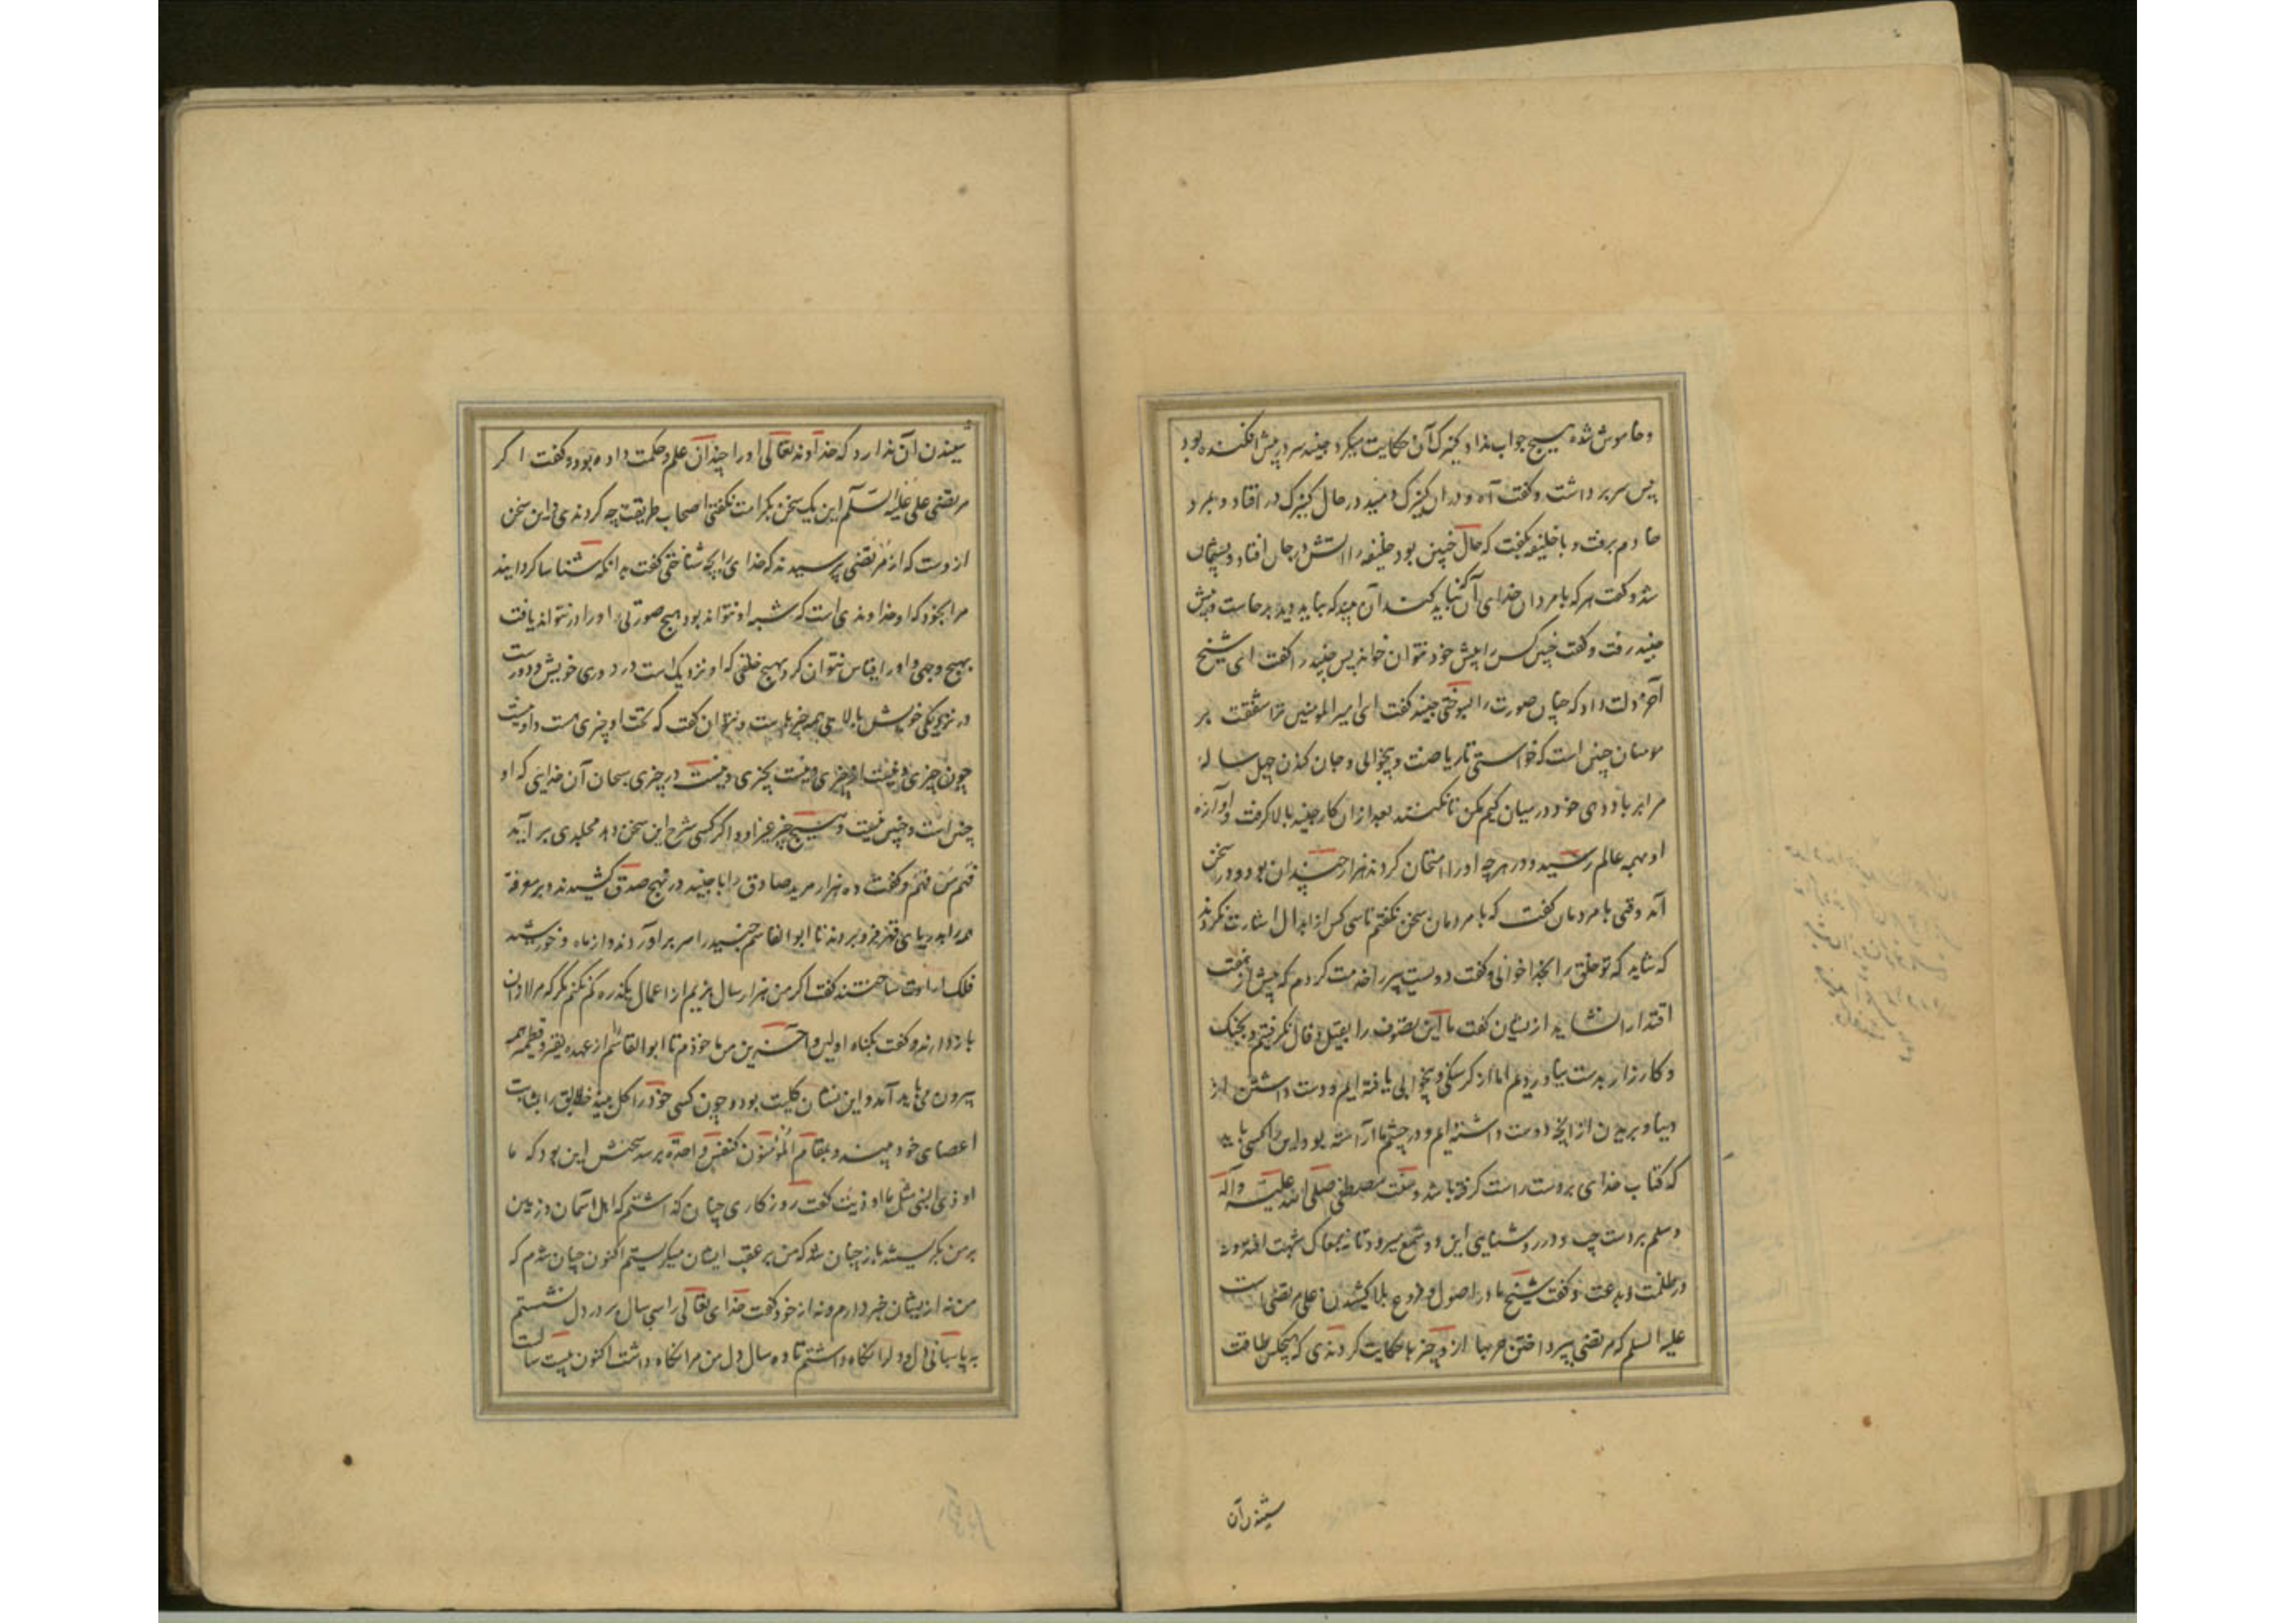 وخاموش شده هیچ جواب نداد کنیزک آن حکایت میکرد جنید سر در پیش افکنده بود
پس سر برداشت و کفت آه و در ان کنیزک دمید در حال کنیزک در افتاد و بمرد
خادم برفت و با خلیفه بکفت که حال چنین بود خلیفه را آتش در جان افتاد و پشیمان
شد و کفت هر که با مردان خدای آن کند که نباید کند آن بیند که نباید دید برخاست و پیش
جنید رفت و کفت چنین کس را پیش خود نتوان خواند پس جنید را کفت ای شیخ
آخر دلت داد که چنان صورت را بسوختی جنید کفت ای امیر المومنین ترا شفقت بر
مومنان چنین است که خواستی تا ریاضت و بیخوابی و جان کندن چهل ساله
مرا بر باد دهی خود در میان کیم مکن تا نکنند بعد از ان کار جنید بالا کرفت و آوازه
او بهمه عالم رسید و در هر چه او را امتحان کردند هزار چندان بود و در سخن
آمد وقتی با مردمان کفت که با مردمان سخن نکفتم تا سی کس از ابدال اشارت نکردند
که شاید که تو خلق را بخدا خوانی و کفت دویست پیر را خدمت کردم که پیش از هفت
اقتدا را نشاید از یشان کفت ما این تصوف را بقیل و قال نکرفتیم و بجنک
و کارزار بدست نیاوردیم اما از کرسنکی و بیخوابی یافته ایم و دست داشتن از
دنیا و بریدن از انچه دوست داشته ایم و در چشم ما آراسته بود و این راه کسی باید
که کتاب خدای بر دست راست کرفته باشد و سنت مصطفی صلی الله علیه وآله
وسلم بر دست چپ و در روشنایی این دو شمع میرود تا نه بمغاک شبهت افتد و نه
در ظلمت و بدعت و کفت شیخ ما در اصول و فروع بلا کشیدن علی مرتضی است
علیه السلم که مرتضی بپرداختن حربها از و چیز ها حکایت کردندی که هیچکس طاقت
شنیدن آن
شنیدن آن ندارد که خداوند تعالی او را چندان علم و حکمت داده بود و کفت اکر
مرتضی علی علیه السلام این یک سخن بکرامت نکفتی اصحاب طریقت چه کردندی و این سخن
از وست که از مرتضی پرسیدند که خدای را بچه شناختی کفت بدانکه شناسا کردانید
مرا بخود که او خداوندی است که شبه او نتواند بود هیچ صورتی و او را در نتوان یافت
بهیچ وجهی و او را قیاس نتوان کرد بهیچ خلقی که او نزدیک است در دوری خویش و دورست
در نزدیکی خویش بالای همه چیزهاست و نتوان کفت که تحت او چیزی هست و او نیست
چون چیزی و نیست از چیزی و نیست بچیزی و نیست در چیزی سبحان آن خدایی که او
چنین است و چنین نیست و هیچ چیز غیر او و اکر کسی شرح این سخن دهد مجلدی بر آید
فهم من فهم و کفت ده هزار مرید صادق را با جنید در نهج صدق کشیدند و بر معرفة
همه را بدریای قهر فرو بردند تا ابو القاسم جنید را سر بر آوردند و از ماه و خورشید
فلک ارادت ساختند کفت اکر من هزار سال بزیم از اعمال یک ذره کم نکنم مکر که مرا از ان
باز دارند و کفت بکناه اولین و آخرین من ماخوذم تا ابو القاسم را از عهده نقیر و قطمیر همه
بیرون می باید آمد و این نشان کلیت بود و چون کسی خود را کل بیند خلایق را بمثابت
اعضای خود بیند و بمقام المؤمنون کنفس واحدة برسد سخنش این بود که ما
اوذی نبی مثل ما اوذیت کفت روزکاری چنان کذاشتم که اهل آسمان و زمین
بر من بکریستند باز چنان شد که من بر عقب ایشان میکریستم اکنون چنان شدم که
من نه از یشان خبر دارم و نه از خود کفت خدای تعالی را سی سال بر در دل نشستم
به پاسبانی دل و دل را نکاه داشتم تا ده سال دل من مرا نکاه داشت اکنون بیست سالست